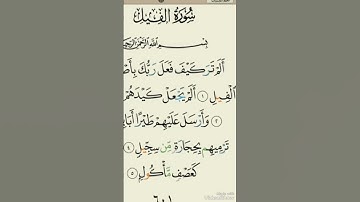 سُورَةُ الْفِيلِ
بِسْمِ اللَّهِ الرَّحْمَٰنِ الرَّحِيمِ
أَلَمْ تَرَ كَيْفَ فَعَلَ رَبُّكَ بِأَصْ
الْفِيلِ ١ أَلَمْ يَجْعَلْ كَيْدَهُمْ
٢ وَأَرْسَلَ عَلَيْهِمْ طَيْرًا أَبَا
تَرْمِيهِم بِحِجَارَةٍ مِّن سِجِّيلٍ ٤
كَعَصْفٍ مَّأْكُولٍ ٥
٦٠١